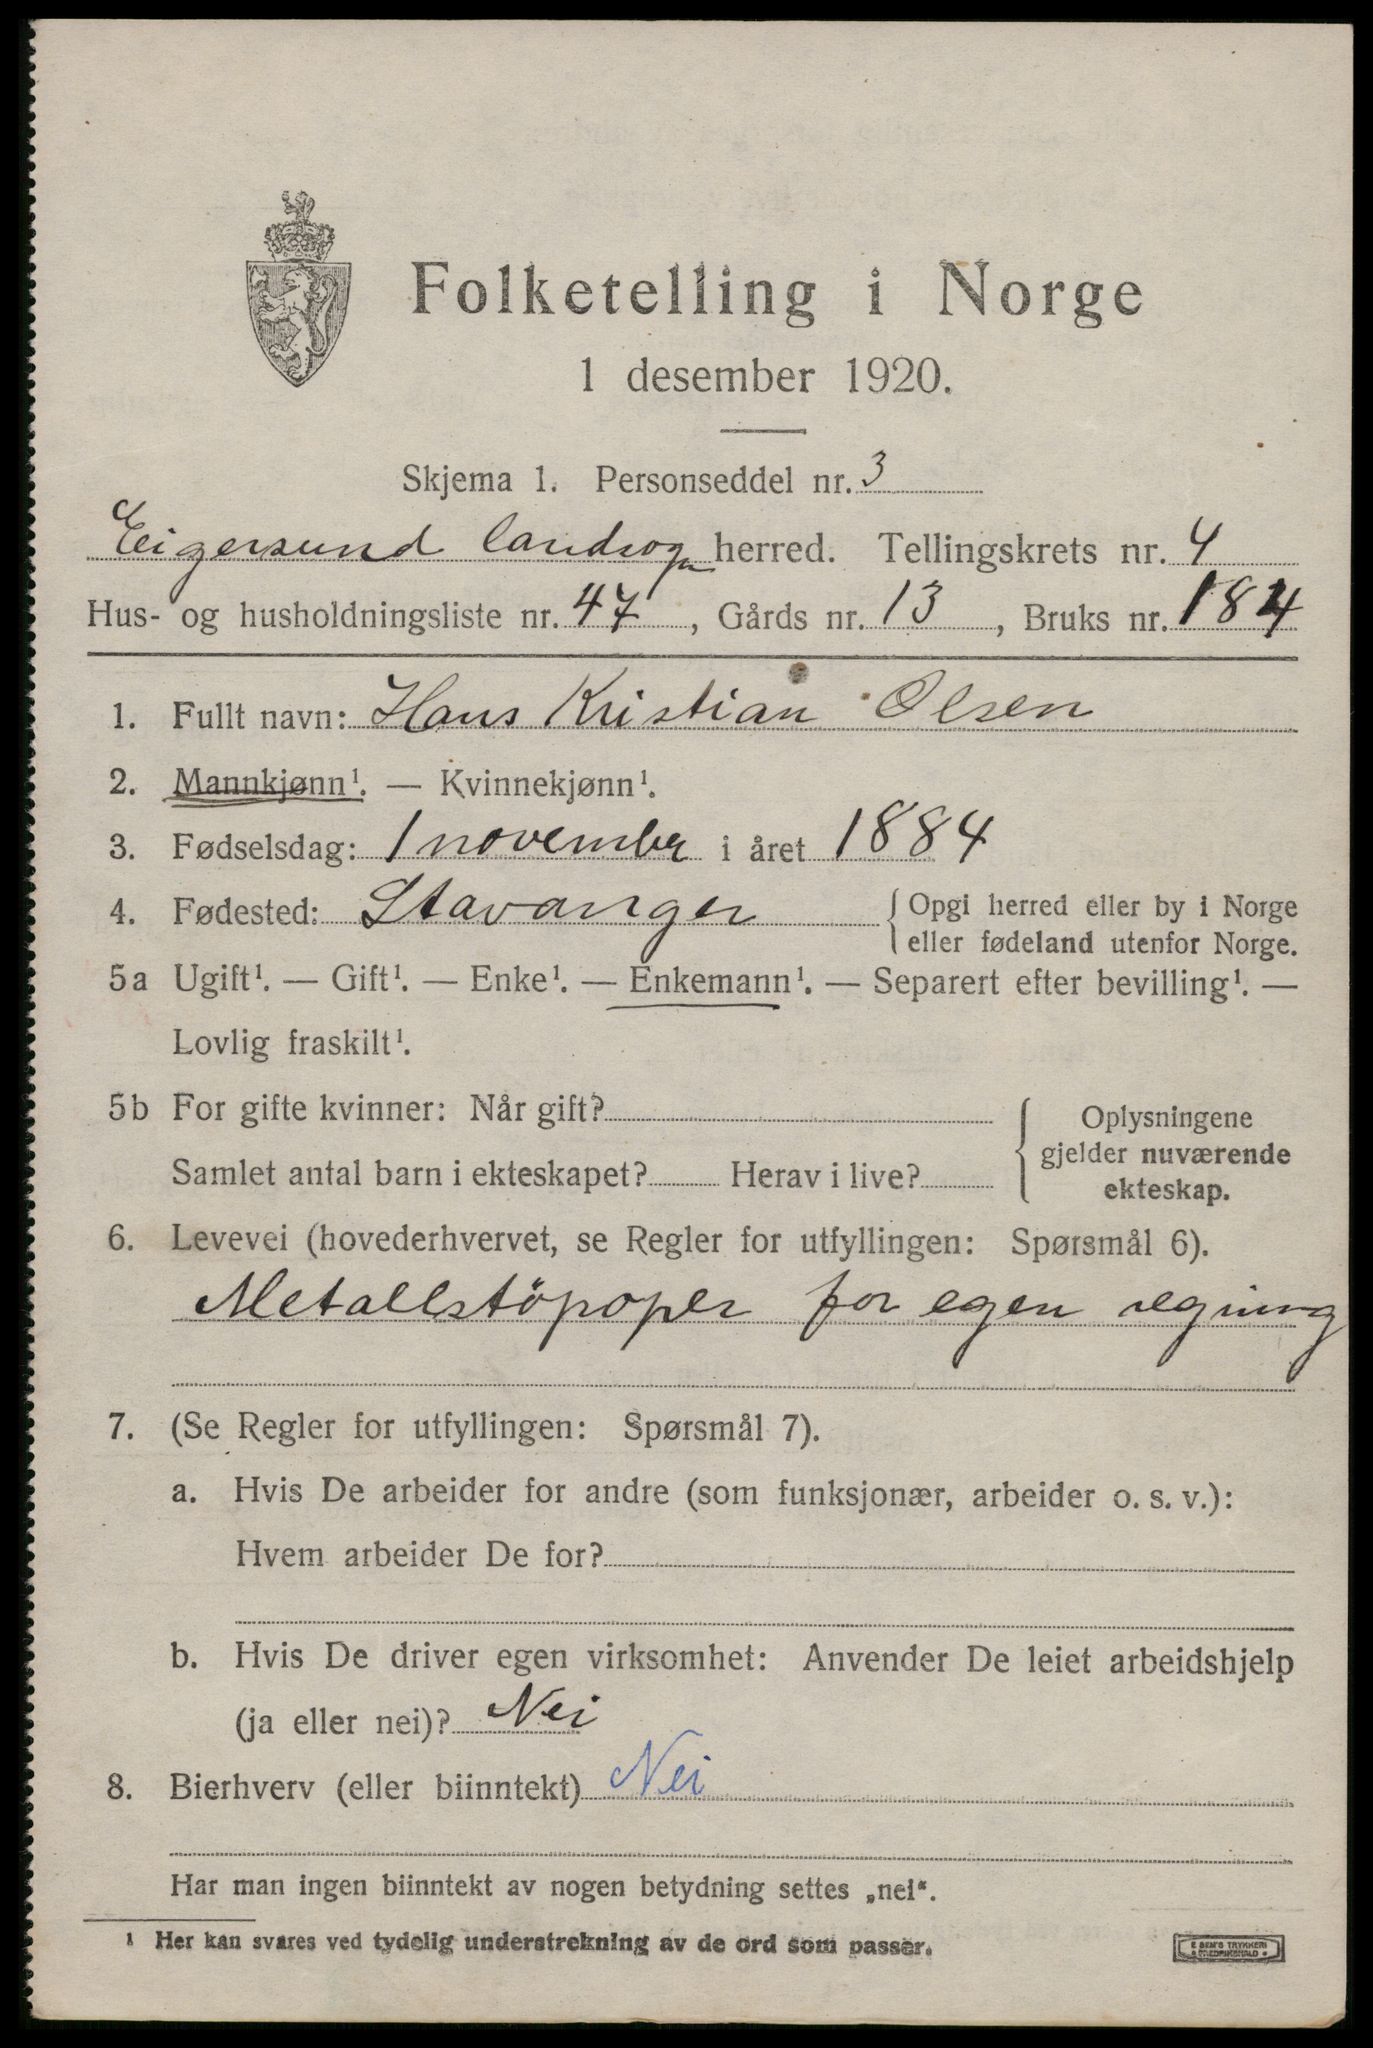 Folketelling i Norge
1 desember 1920.
Skjema 1. Personseddel nr. 3
Eigersund landsogn herred. Tellingskrets nr. 4
Hus- og husholdningsliste nr. 47, Gårds nr. 13, Bruks nr. 184
1. Fullt navn: Hans Kristian Olsen
2. Mannkjønn¹. — Kvinnekjønn¹.
3. Fødselsdag: 1 november i året 1884
4. Fødested: Stavanger { Opgi herred eller by i Norge
eller fødeland utenfor Norge.
5a Ugift¹. — Gift¹. — Enke¹. — Enkemann¹. — Separert efter bevilling¹. —
Lovlig fraskilt¹.
5b For gifte kvinner: Når gift?
Samlet antal barn i ekteskapet? Herav i live?
{ Oplysningene
gjelder nuværende
ekteskap.
6. Levevei (hovederhvervet, se Regler for utfyllingen: Spørsmål 6).
Metallstöpoper for egen regning
7. (Se Regler for utfyllingen: Spørsmål 7).
a. Hvis De arbeider for andre (som funksjonær, arbeider o. s. v.):
Hvem arbeider De for?
b. Hvis De driver egen virksomhet: Anvender De leiet arbeidshjelp
(ja eller nei)? Nei
8. Bierhverv (eller biinntekt) Nei
Har man ingen biinntekt av nogen betydning settes „nei“.
¹ Her kan svares ved tydelig understrekning av de ord som passer.
E SEM'S TRYKKERI
FREDRIKSHALD